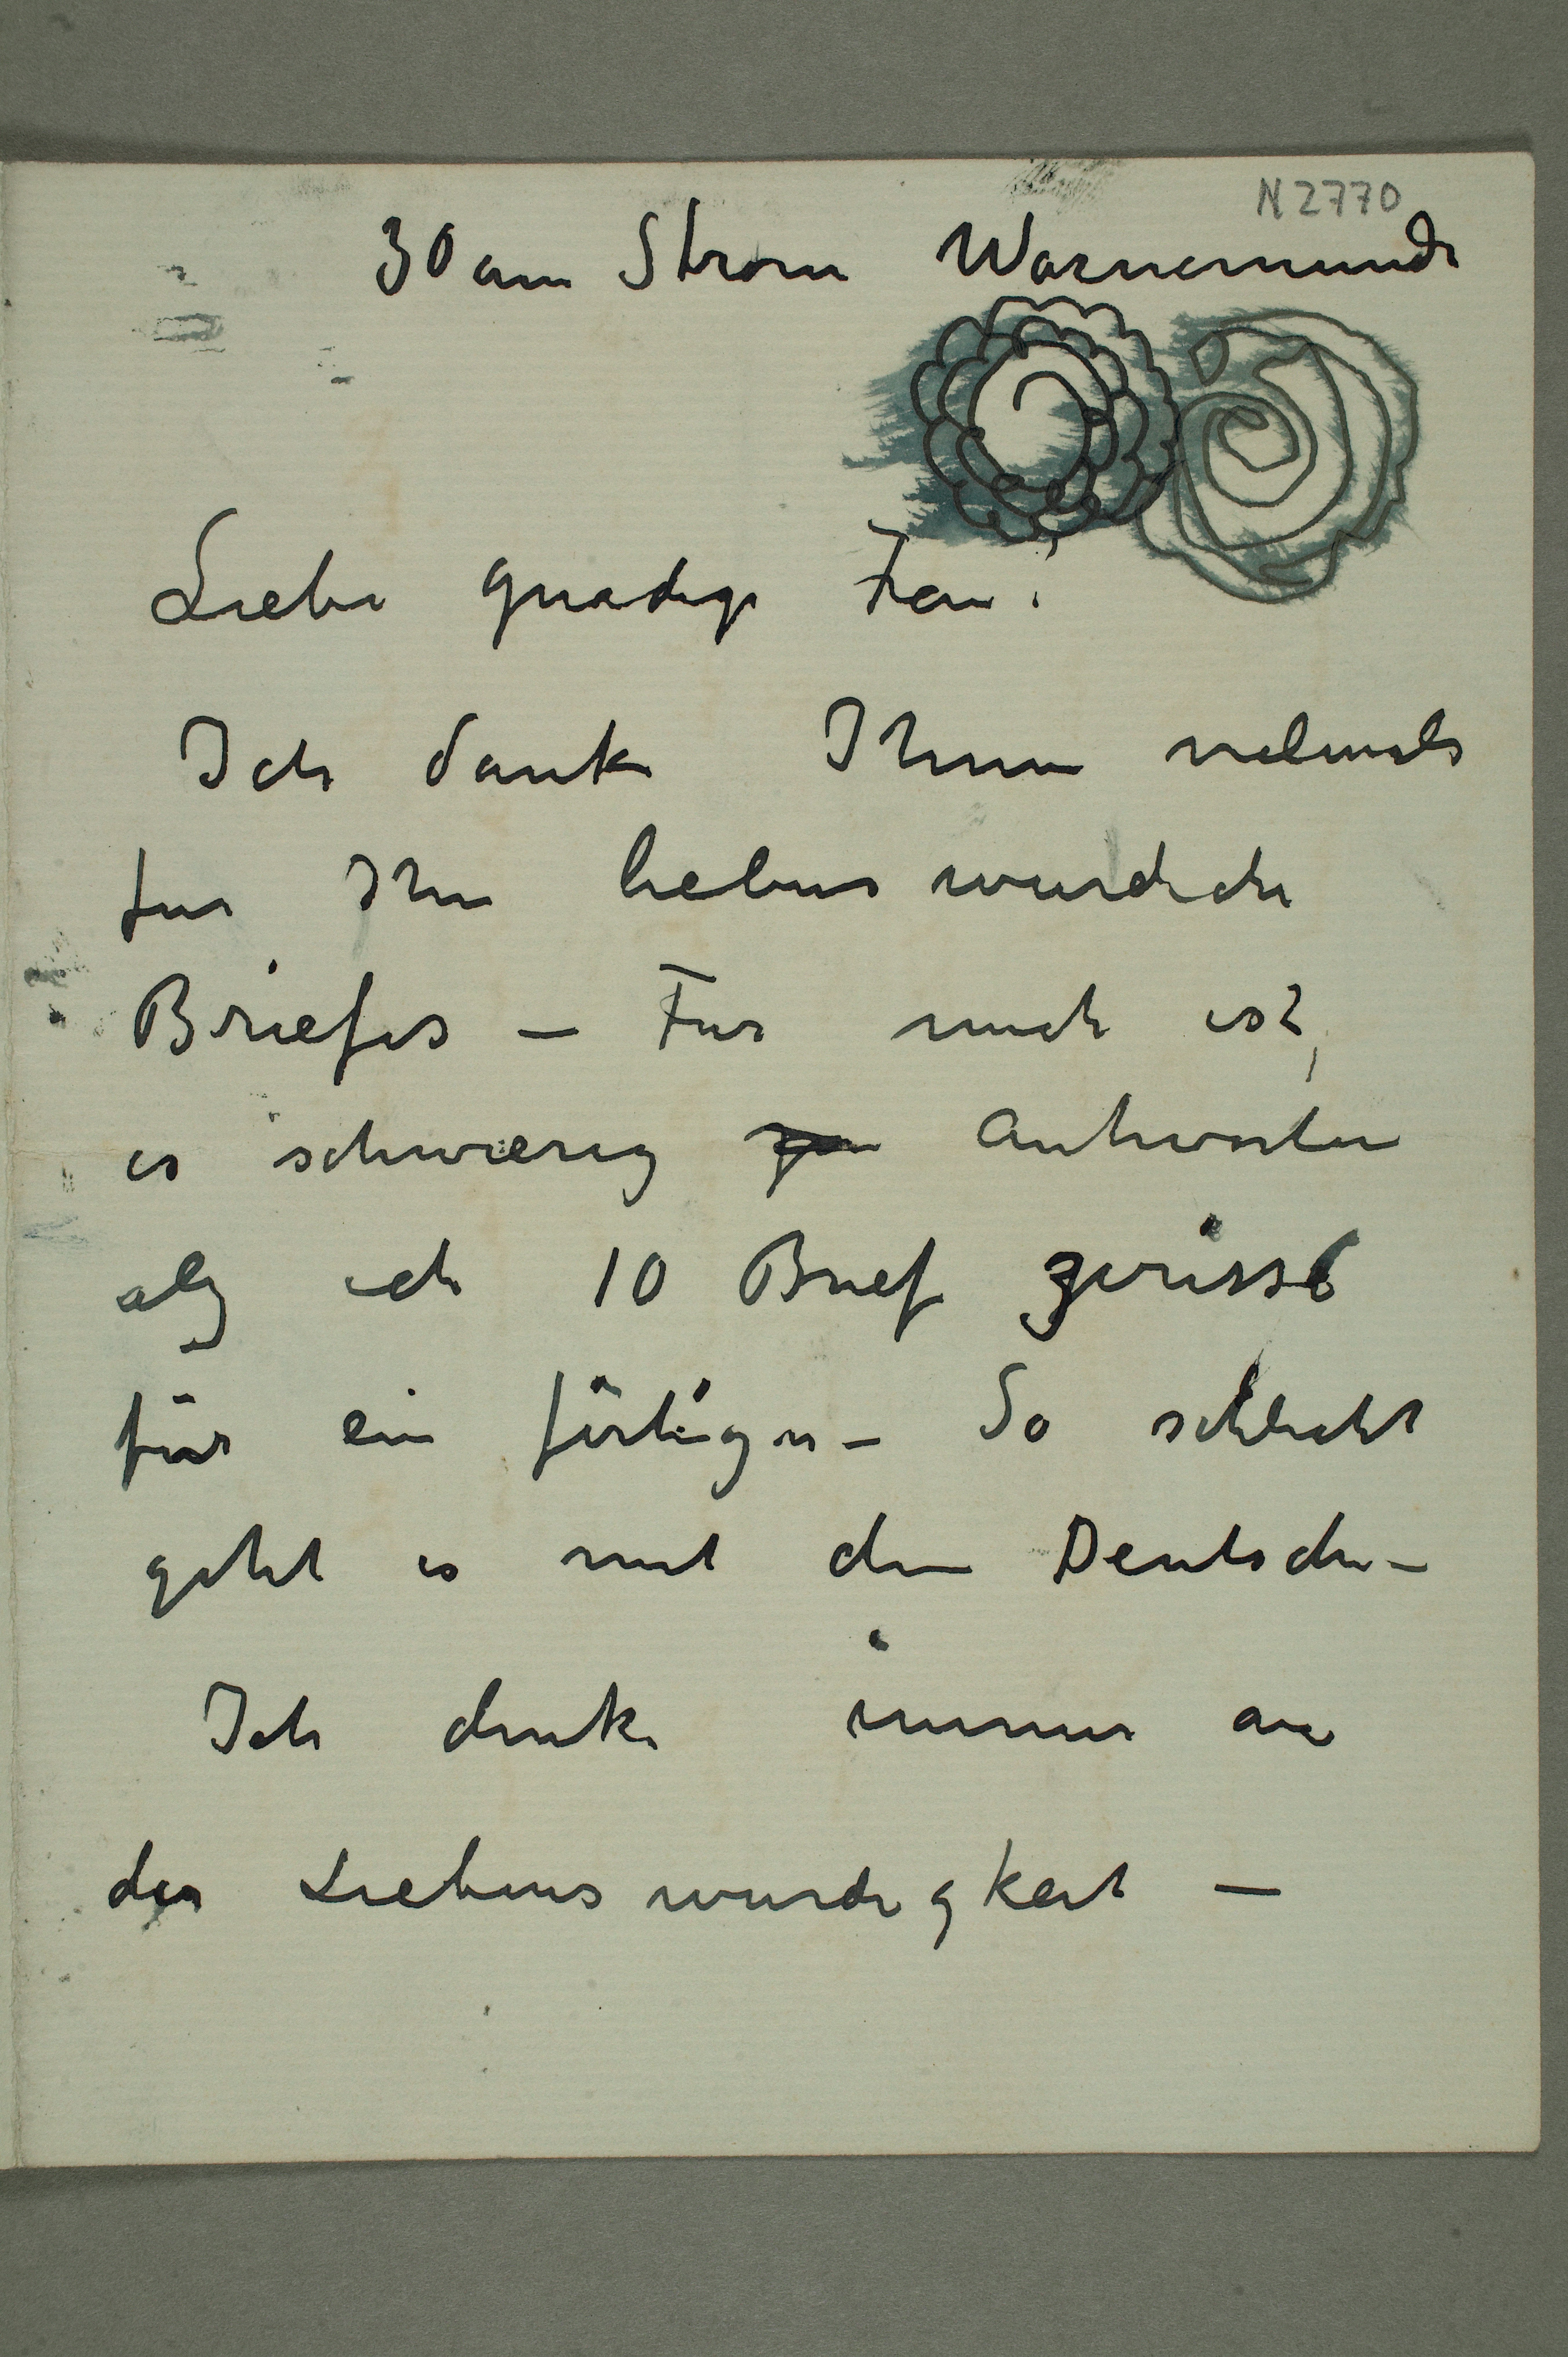 N 2770
30 am Strom Warnemunde
Liebe gnadige Frau!
Ich danke Ihnen vielmals
fur Ihre liebenswurdiche
Briefes – Fur mich ist,
es schwierig zu antworten
als ich 10 Briefe zerisse
für ein fërtiges – So schlecht
geht es mit den Deutschen –
Ich denke immer an
der Liebenswurdigkeit –